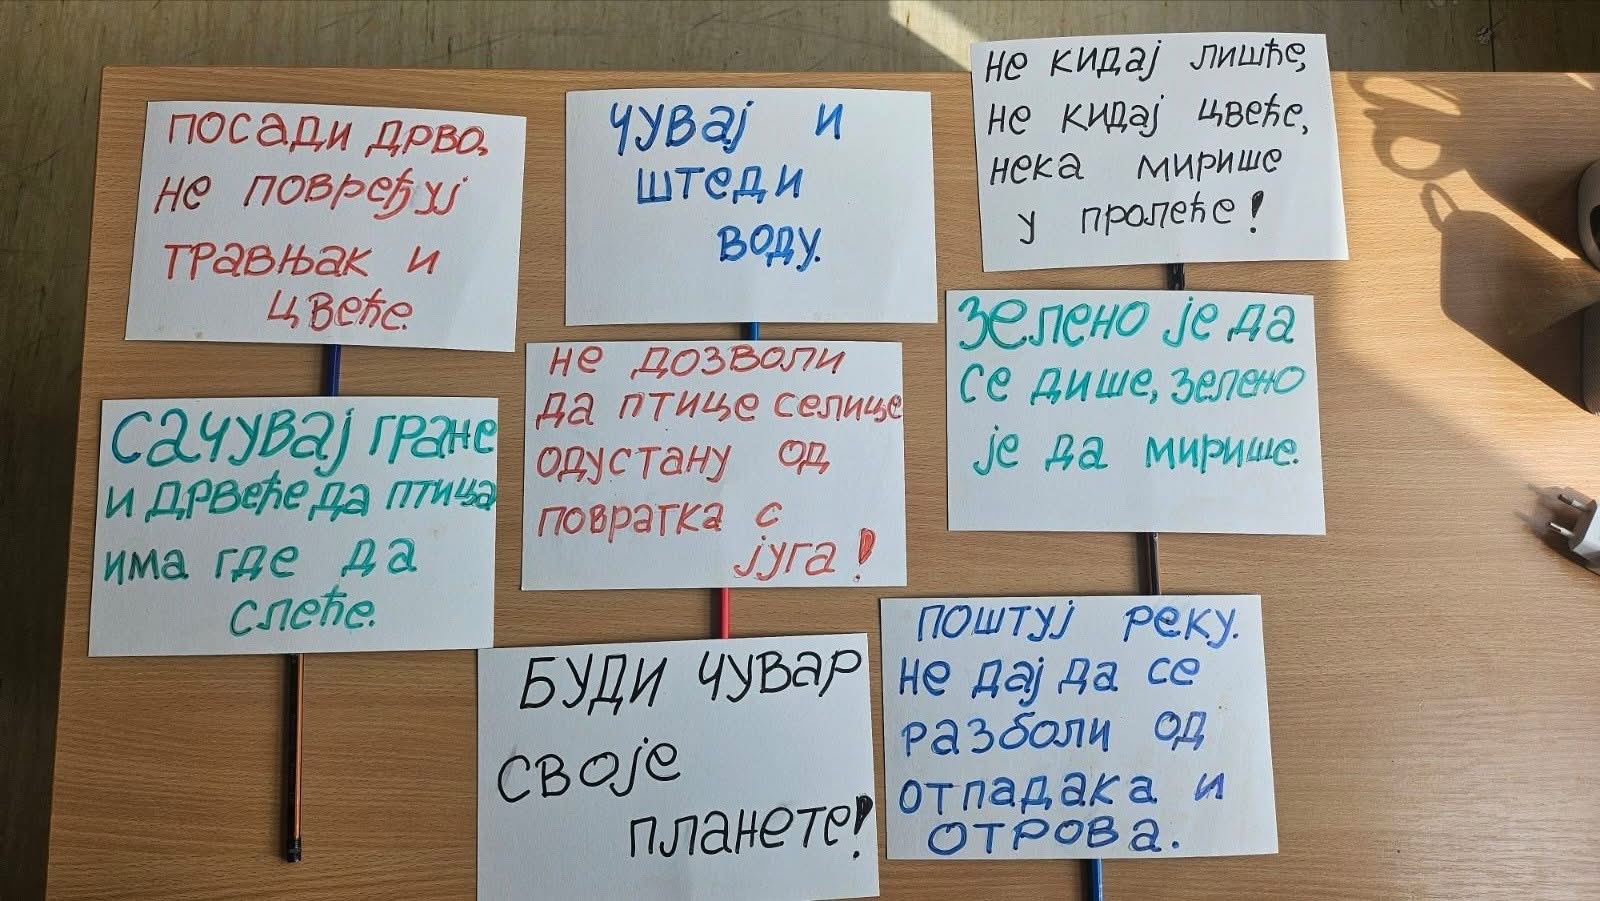 ПОСАДИ ДРВО,
НЕ ПОВРЕЂУЈ
ТРАВЊАК И
ЦВЕЋЕ.
ЧУВАЈ И
ШТЕДИ
ВОДУ.
НЕ КИДАЈ ЛИШЋЕ,
НЕ КИДАЈ ЦВЕЋЕ,
НЕКА МИРИШЕ
У ПРОЛЕЋЕ!
САЧУВАЈ ГРАНЕ
И ДРВЕЋЕ ДА ПТИЦА
ИМА ГДЕ ДА
СЛЕЋЕ.
НЕ ДОЗВОЛИ
ДА ПТИЦЕ СЕЛИЦЕ
ОДУСТАНУ ОД
ПОВРАТКА С
ЈУГА!
ЗЕЛЕНО ЈЕ ДА
СЕ ДИШЕ, ЗЕЛЕНО
ЈЕ ДА МИРИШЕ.
БУДИ ЧУВАР
СВОЈЕ
ПЛАНЕТЕ!
ПОШТУЈ РЕКУ.
НЕ ДАЈ ДА СЕ
РАЗБОЛИ ОД
ОТПАДАКА И
ОТРОВА.